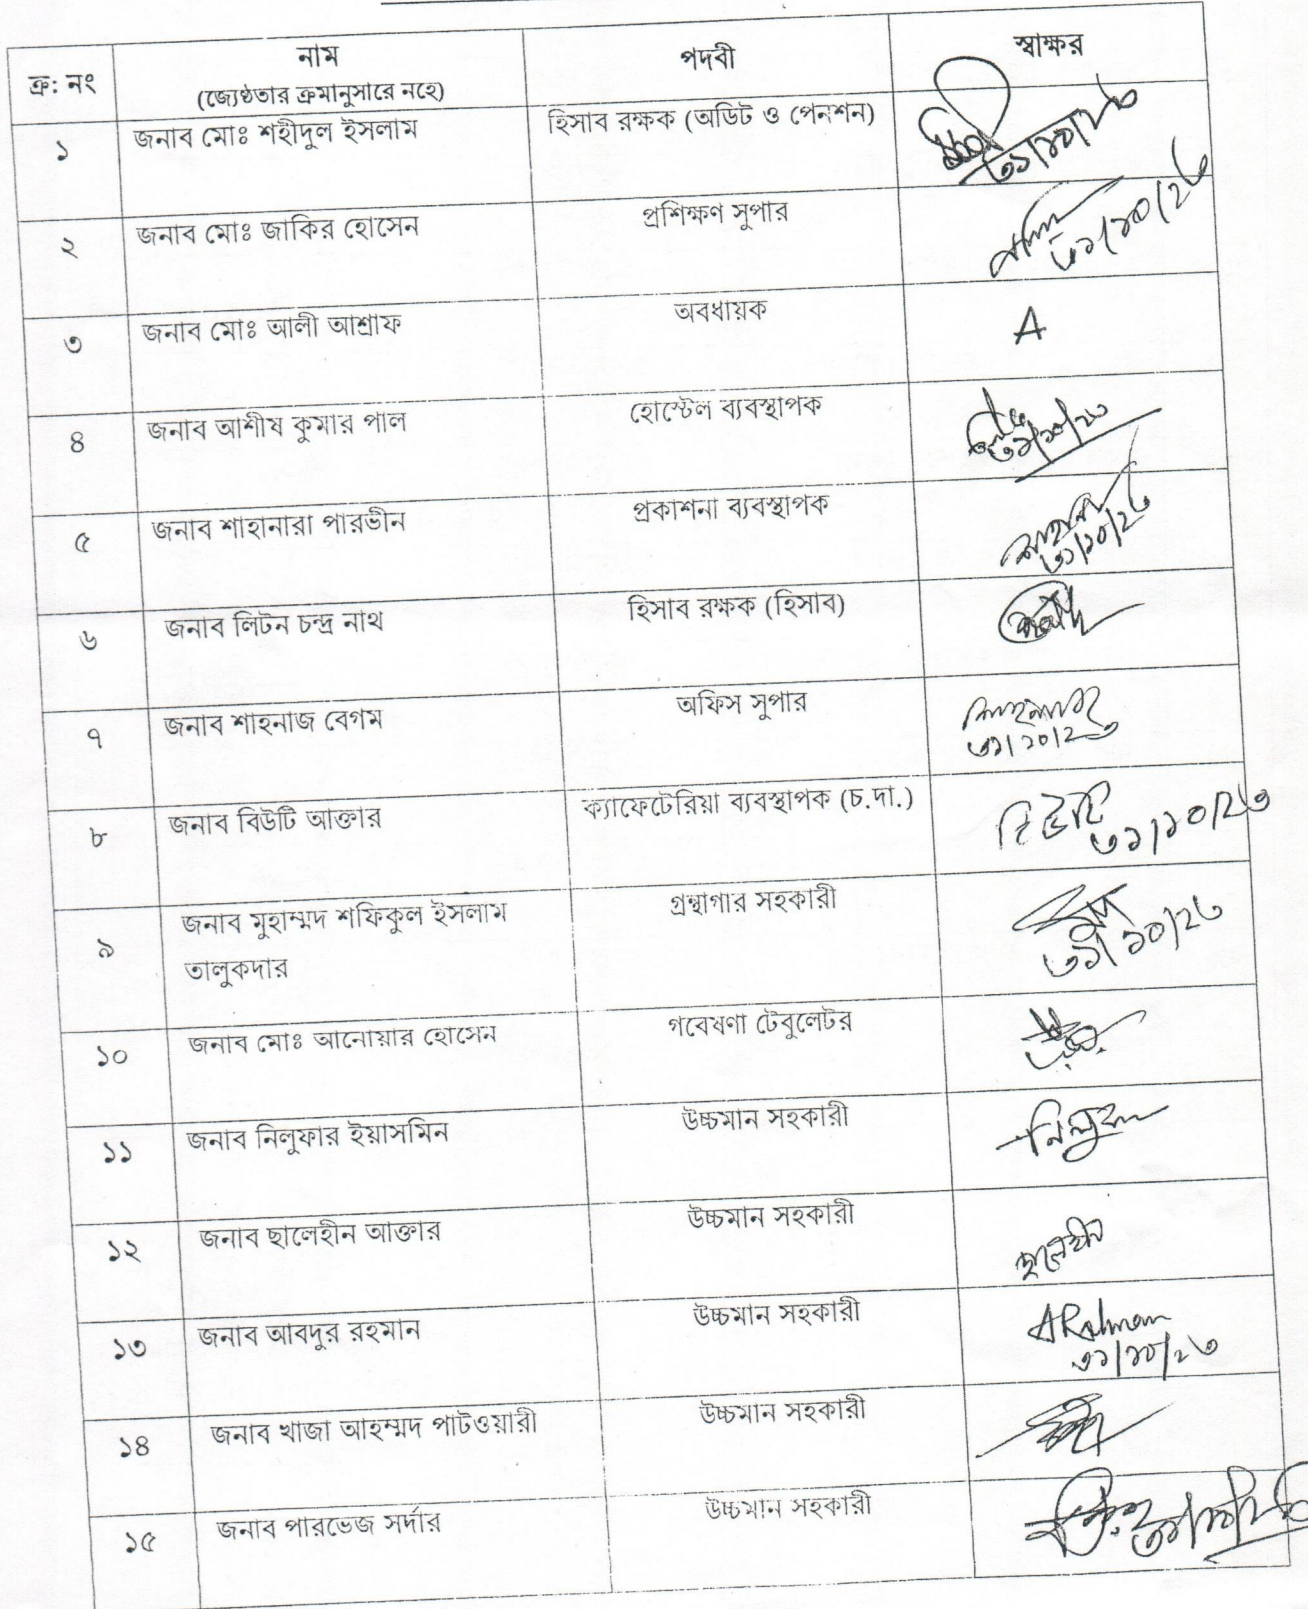 ক্র: নং নাম পদবী স্বাক্ষর
(জ্যেষ্ঠতার ক্রমানুসারে নহে)
১ জনাব মোঃ শহীদুল ইসলাম হিসাব রক্ষক (অডিট ও পেনশন) ৩১/১০/২৩
২ জনাব মোঃ জাকির হোসেন প্রশিক্ষণ সুপার ৩১/১০/২৩
৩ জনাব মোঃ আলী আশ্রাফ অবধায়ক A
৪ জনাব আশীষ কুমার পাল হোস্টেল ব্যবস্থাপক ৩১/১০/২৩
৫ জনাব শাহানারা পারভীন প্রকাশনা ব্যবস্থাপক ৩১/১০/২৩
৬ জনাব লিটন চন্দ্র নাথ হিসাব রক্ষক (হিসাব)
৭ জনাব শাহনাজ বেগম অফিস সুপার ৩১/১০/২৩
৮ জনাব বিউটি আক্তার ক্যাফেটেরিয়া ব্যবস্থাপক (চ.দা.) বিউটি
৩১/১০/২৩
৯ জনাব মুহাম্মদ শফিকুল ইসলাম গ্রন্থাগার সহকারী
তালুকদার ৩১/১০/২৩
১০ জনাব মোঃ আনোয়ার হোসেন গবেষণা টেবুলেটর
১১ জনাব নিলুফার ইয়াসমিন উচ্চমান সহকারী
১২ জনাব ছালেহীন আক্তার উচ্চমান সহকারী ছালেহীন
১৩ জনাব আবদুর রহমান উচ্চমান সহকারী ARahman
৩১/১০/২৩
১৪ জনাব খাজা আহম্মদ পাটওয়ারী উচ্চমান সহকারী
১৫ জনাব পারভেজ সর্দার উচ্চমান সহকারী ৩১/১০/২৩